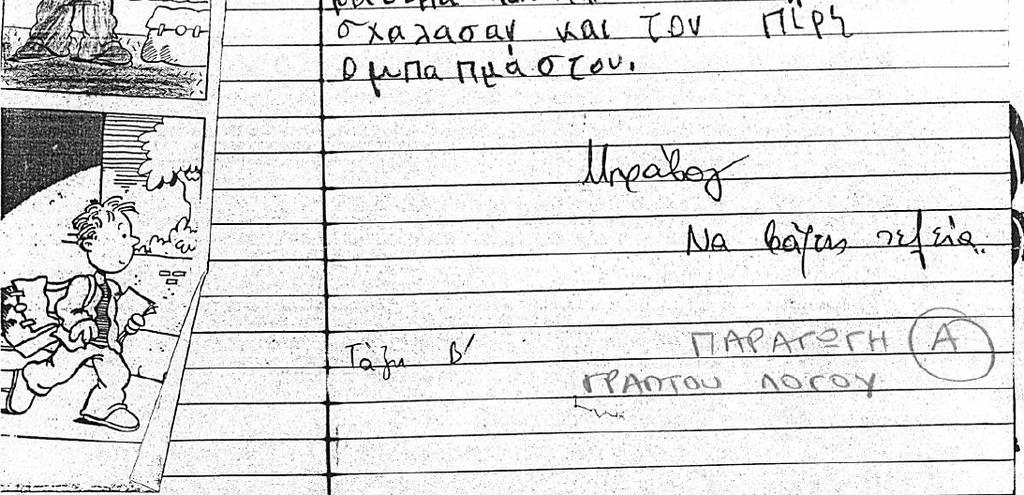 σχαλασαν και τον πίρη
ομπαπμάστου.
Μπράβο
Να βάζεις τελεία.
Τάξη Β΄
ΠΑΡΑΓΩΓΗ Α
ΓΡΑΠΤΟΥ ΛΟΓΟΥ